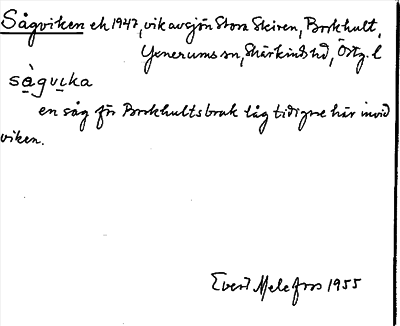 Sågviken ek 1947, vik av sjön Stora Skiren, Borkhult,
Yxnerums sn, Skärkinds hd, Östg. l
sågvika
en såg för Borkhults bruk låg tidigare här invid
viken.
Evert Melefors 1955